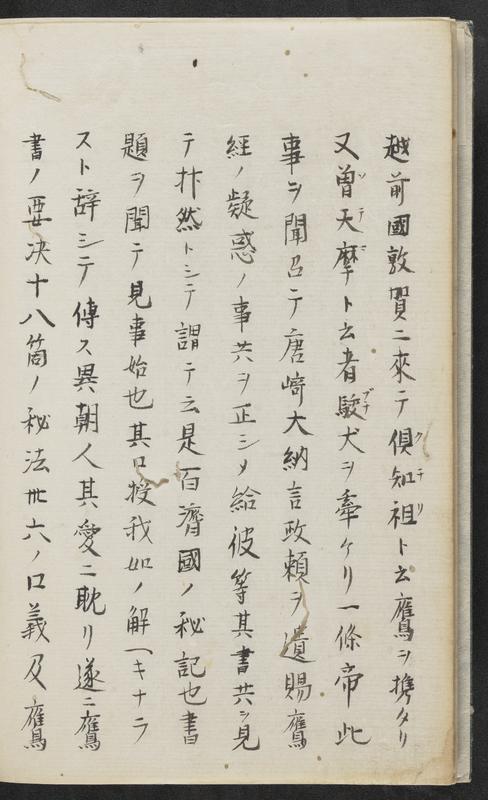 越前國敦賀ニ來テ倶知祖(クチリ)ト云鷹ヲ携タリ
又曽天摩(ソテミ)ト云者駿(ブチ)犬ヲ牽ケリ一條帝此
事ヲ聞召テ唐﨑大納言政頼ヲ遣賜鷹
經ノ疑惑ノ事共ヲ正シメ給彼等其書共ヲ見
テ抃然トシテ謂テ云是百濟國ノ秘記也書
題ヲ聞テ見事始也其口授我如ノ解ヘキナラ
スト辞シテ傳ス異朝人其愛ニ耽リ遂ニ鷹
書ノ要决十八箇ノ秘法卅六ノ口義及鷹